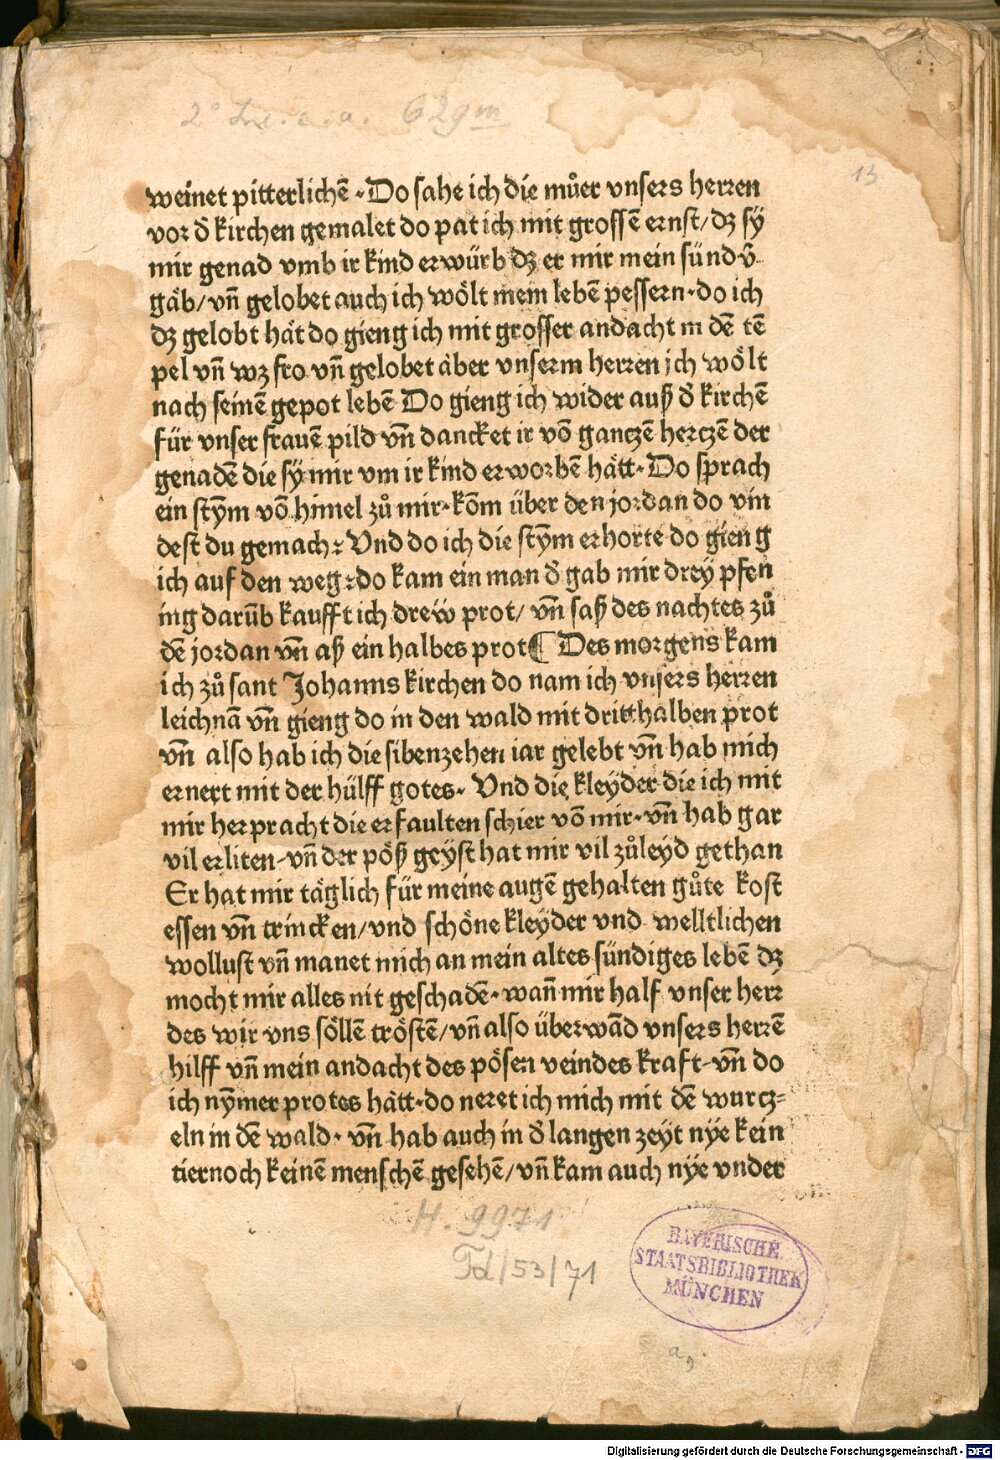 2° Inc. c. a. 629m
13
weinet pitterlichē · Do sahe ich die můer vnsers herren
vor d̄ kirchen gemalet do pat ich mit grossē ernst/ dz sÿ
mir genad vmb ir kind erwürb dz er mir mein sünd v̄-
gäb/ vn̄ gelobet auch ich wölt mein lebē pessern · do ich
dz gelobt hät do gieng ich mit grosser andacht in dē tē
pel vn̄ wz fro vn̄ gelobet aber vnserm herren ich wölt
nach seinē gepot lebē Do gieng ich wider auß d̄ kirchē
für vnser frauē pild vn̄ dancket ir vō gantzē hertzē der
genadē die sÿ mir vm ir kind erworbē hätt · Do sprach
ein stȳm vō himel zů mir · kōm über den jordan do vin
dest du gemach : Vnd do ich die stȳm erhorte do gieng
ich auf den weg : do kam ein man d̄ gab mir dreÿ pfen
ing darūb kaufft ich drew prot/ vn̄ saß des nachtes zů
dē jordan vn̄ aß ein halbes prot ¶ Des morgens kam
ich zů sant Johanns kirchen do nam ich vnsers herren
leichnā vn̄ gieng do in den wald mit dritthalben prot
vn̄ also hab ich die sibenzehen iar gelebt vn̄ hab mich
ernert mit der hülff gotes · Vnd die kleÿder die ich mit
mir herpracht die erfaulten schier vō mir · vn̄ hab gar
vil erliten · vn̄ der pöß geÿst hat mir vil zůleyd gethan
Er hat mir täglich für meine augē gehalten gůte kost
essen vn̄ trincken/ vnd schöne kleÿder vnd welltlichen
wollust vn̄ manet mich an mein altes sündiges lebē dz
mocht mir alles nit geschadē · wan̄ mir half vnser herr
des wir vns söllē tröstē/ vn̄ also überwād vnsers herrē
hilff vn̄ mein andacht des pösen veindes kraft · vn̄ do
ich nȳmer protes hätt · do neret ich mich mit dē wurtz=
eln in dē wald · vn̄ hab auch in d̄ langen zeÿt nÿe kein
tier noch keinē menschē gesehē/ vn̄ kam auch nÿe vnder
H. 9971
Td/53/71
BAYERISCHE
STAATSBIBLIOTHEK
MÜNCHEN
Digitalisierung gefördert durch die Deutsche Forschungsgemeinschaft - DFG